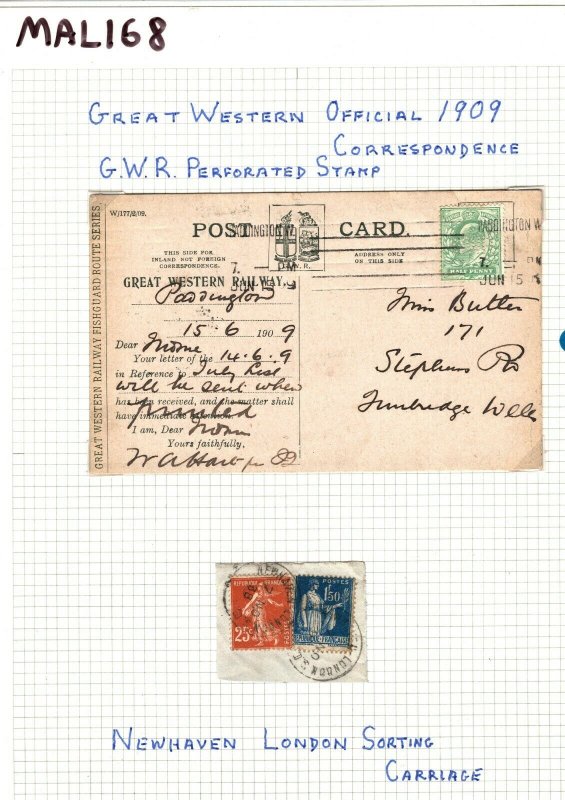 MAL168
GREAT WESTERN OFFICIAL 1909
CORRESPONDENCE
G.W.R. PERFORATED STAMP
W/177/2/09.
POST CARD.
THIS SIDE FOR
INLAND NOT FOREIGN
CORRESPONDENCE.
ADDRESS ONLY
ON THIS SIDE
GREAT WESTERN RAILWAY.
Paddington
15 6 1909
Dear Mdme
Your letter of the 14.6.9
in Reference to July List
will be sent when
has been received, and the matter shall
printed
have immediate attention.
I am, Dear
Yours faithfully,
GREAT WESTERN RAILWAY FISHGUARD ROUTE SERIES
PADDINGTON W.
7. PM
JUN 15
HALF PENNY
Miss Butler
171
Stephens Rd
Tunbridge Wells
REPUBLIQUE FRANÇAISE
25c
POSTES
1F50
REPUBLIQUE FRANÇAISE
LONDON
NEWHAVEN LONDON SORTING
CARRIAGE